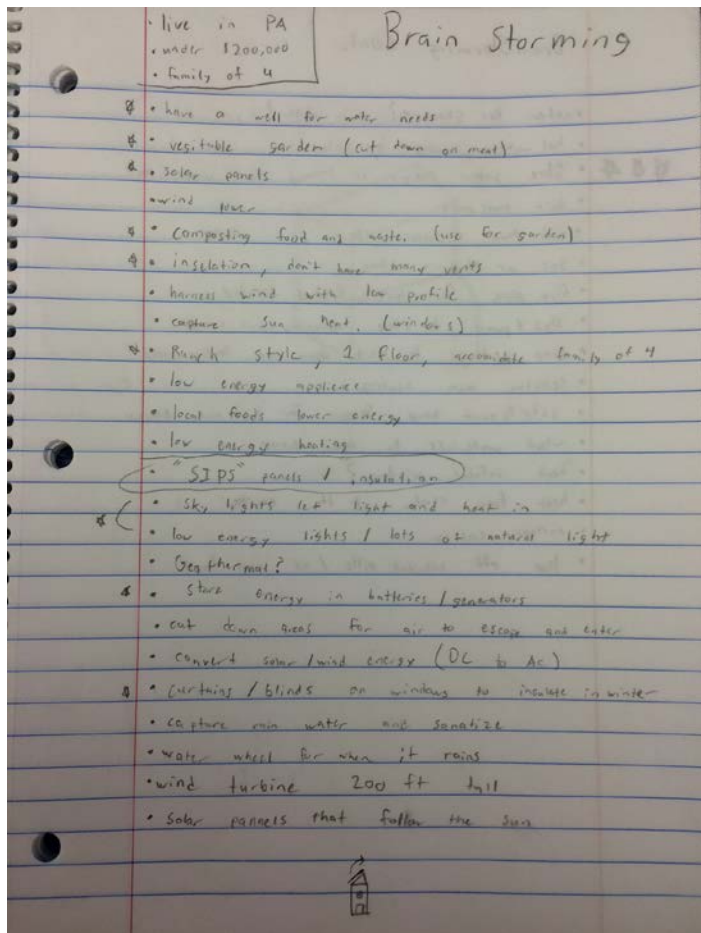 • live in PA
• under $200,000
• family of 4
Brain Storming
• have a well for water needs
• vegitable garden (cut down on meat)
• solar panels
• wind power
• composting food and waste. (use for garden)
• insulation, don't have many vents
• harness wind with low profile
• capture sun heat. (windows)
• Ranch style, 1 floor, accomidate family of 4
• low energy applience
• local foods lower energy
• low energy heating
• "SIPS" panels / insulation
• Sky lights let light and heat in
• low energy lights / lots of natural light
• Geothermal?
• store energy in batteries / generators
• cut down areas for air to escape and enter
• convert solar / wind energy (DC to AC)
• curtains / blinds on windows to insulate in winter
• capture rain water and sanatize
• water wheel for when it rains
• wind turbine 200 ft tall
• Solar pannels that follow the sun